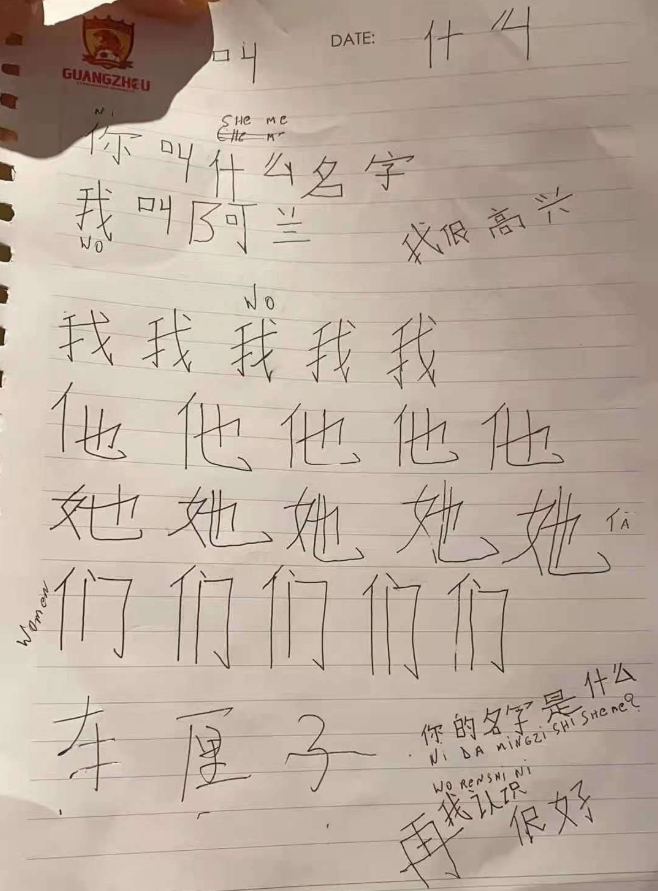 GUANGZHOU
叫 DATE: 什么
Ni SHE ME
你叫什么名字
我叫阿兰
WO
我很高兴
WO
我 我 我 我 我
他 他 他 他 他
她 她 她 她 她 TA
们 们 们 们 们
Women
车 厘 子
你的名字是什么
Ni DA MiNGZi SHi SHEME?
WO RENSHi Ni
我认识
再 很好